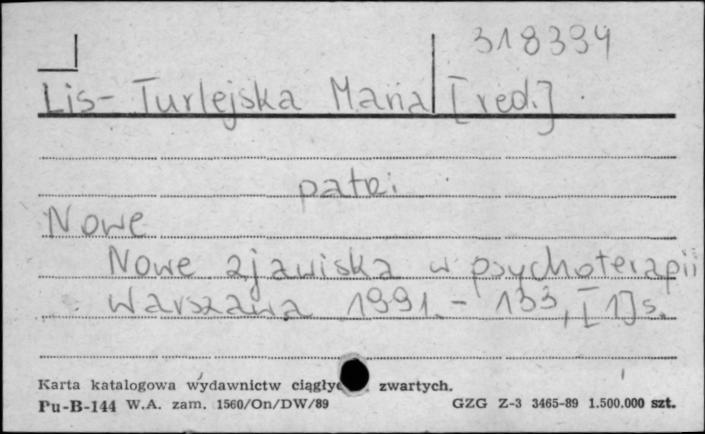 318394
Lis-Turlejska Maria [red.]
patrz:
Nowe
Nowe zjawiska w psychoterapii
Warszawa 1991. - 133, [1] s.
Karta katalogowa wydawnictw zwartych.
Pu-B-144 W.A. zam. 1560/On/DW/89 GZG Z-3 3465-89 1.500.000 szt.